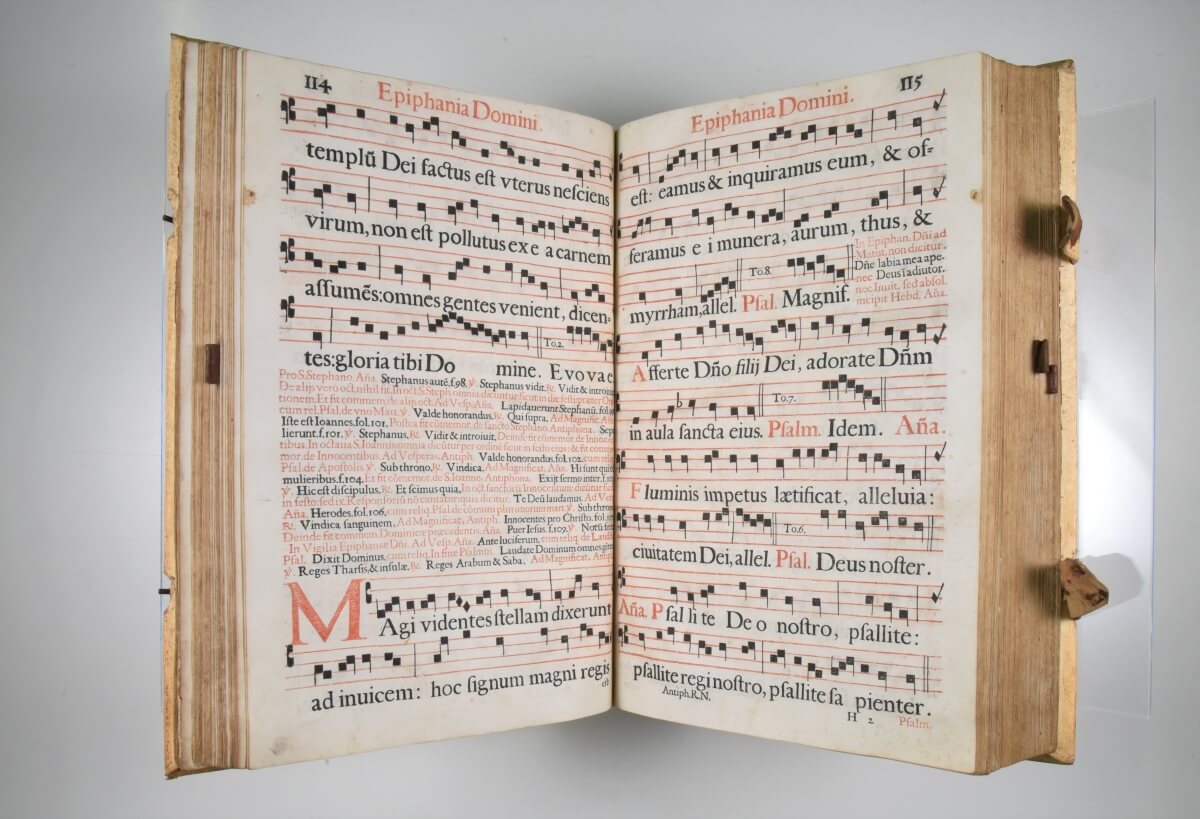 114
Epiphania Domini.
templũ Dei factus eſt vterus neſciens
virum, non eſt pollutus ex e a carnem
aſſumẽs: omnes gentes venient, dicen-
To.2.
tes: gloria tibi Do mine. E v o v a e
Pro S. Stephano. Aña. Stephanus autẽ. f.98. ℣. Stephanus vidit. ℟. Vidit & introiuit
De alijs vero oct. nihil fit. In oct. S. Steph. omnia dicuntur ſicut in die feſti
tionem. Et fit commem. de alijs oct. Ad Veſp. Aña. Lapidauerunt Stephanũ, fol.
cum rel. Pſal. de vno Mart. ℣. Valde honorandus, ℟. Qui ſupra, Ad Magnific. Aña
Iſte eſt Ioannes. fol.101. Poſtea fit cõmemor. de ſancto Stephano. Antiphona. Sepe
lierunt. f.101. ℣. Stephanus, ℟. Vidit & introiuit, Deinde fit cõmemor. de Innocen
tibus. In octaua S. Ioannis, omnia dicũtur per ordinẽ ſicut in feſto eius: & fit com
mor de Innocentibus. Ad Veſperas, Antiph. Valde honorandus. fol.102. cum reliq
Pſal. de Apoſtolis. ℣. Sub throno, ℟. Vindica, Ad Magnificat. Aña. Hi ſunt qui
mulieribus. f.104. Et fit cõmemor. de S. Ioanne. Antiphona. Exijt ſermo inter.
℣. Hic eſt diſcipulus, ℟. Et ſcimus quia, In oct. ſanctorũ Innocentum: dicũtur ſicut
in feſto: ſed ix. Reſponſoriũ nõ cantatur: quia dicitur. Te Deũ laudamus. Ad Veſ
Aña. Herodes. fol.106. cum reliq. Pſal. de cõmuni plurimorum mart. ℣. Sub thron
℟. Vindica ſanguinem, Ad Magnificat, Antiph. Innocentes pro Chriſto. fol.
Deinde fit commem. Dominicæ præcedentis. Aña. Puer Ieſus. f.109. ℣. Notũ fecit
In Vigilia Epiphaniæ Dñi. Ad Veſp. Aña. Ante luciferum, cum reliq. de Laud
Pſal. Dixit Dominus, cum reliq. In fine Pſalmus. Laudate Dominum omnes gentes
℣. Reges Tharſis, & inſulæ, ℟. Reges Arabum & Saba, Ad Magnificat, Antiph
Magi videntes ſtellam dixerunt
ad inuicem: hoc ſignum magni regis
eſt
115
Epiphania Domini.
eſt: eamus & inquiramus eum, & of-
feramus e i munera, aurum, thus, &
In Epiphan. Dñi ad
Matut. non dicitur.
Dñe labia mea ape-
nec Deus ĩ adiutor.
nec Inuit. ſed abſol.
incipit Hebd. Aña.
To.8.
myrrham, allel. Pſal. Magnif.
Afferte Dño filij Dei, adorate Dñm
To.7.
in aula ſancta eius. Pſalm. Idem. Aña.
Fluminis impetus lætificat, alleluia:
To.6.
ciuitatem Dei, allel. Pſal. Deus noſter.
Aña. Pſal li te De o noſtro, pſallite:
pſallite regi noſtro, pſallite ſa pienter.
Antiph. R.N. H 2 Pſalm.